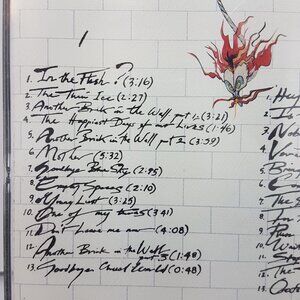 1
1. In the Flesh? (3:16)
2. The Thin Ice (2:27)
3. Another Brick in the Wall part 1 (3:21)
4. The Happiest Days of our Lives (1:46)
5. Another Brick in the Wall part 2 (3:59)
6. Mother (5:32)
7. Goodbye Blue Sky (2:45)
8. Empty Spaces (2:10)
9. Young Lust (3:25)
10. One of my turns (3:41)
11. Don't Leave me now (4:08)
12. Another Brick in the Wall part 3 (1:48)
13. Goodbye Cruel World (0:48)
1. Hey
2. Is
3. No
4. Ver
5. Bring
6.
7. The S
8. In
9. Run
10. Wait
11. Stop
12. The
13. Outs